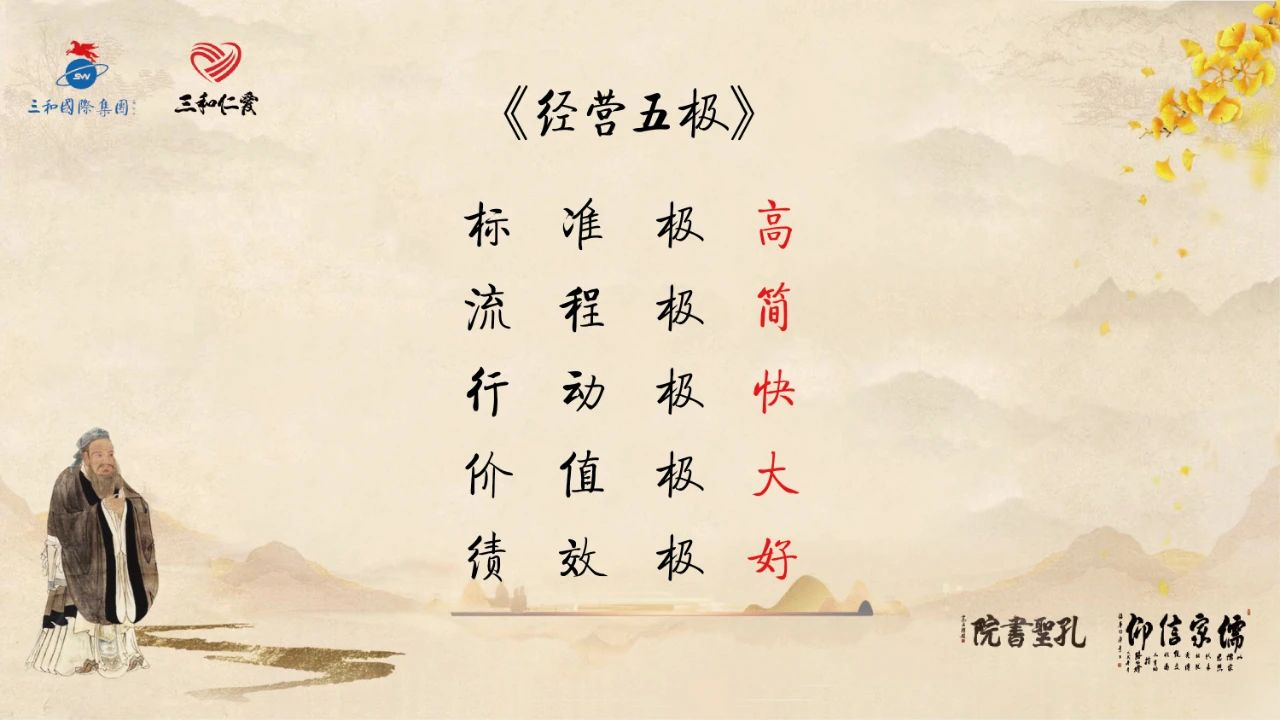 三和國際集團
三和仁爱
《经营五极》
标准极高
流程极简
行动极快
价值极大
绩效极好
院書聖孔
仰信家儒